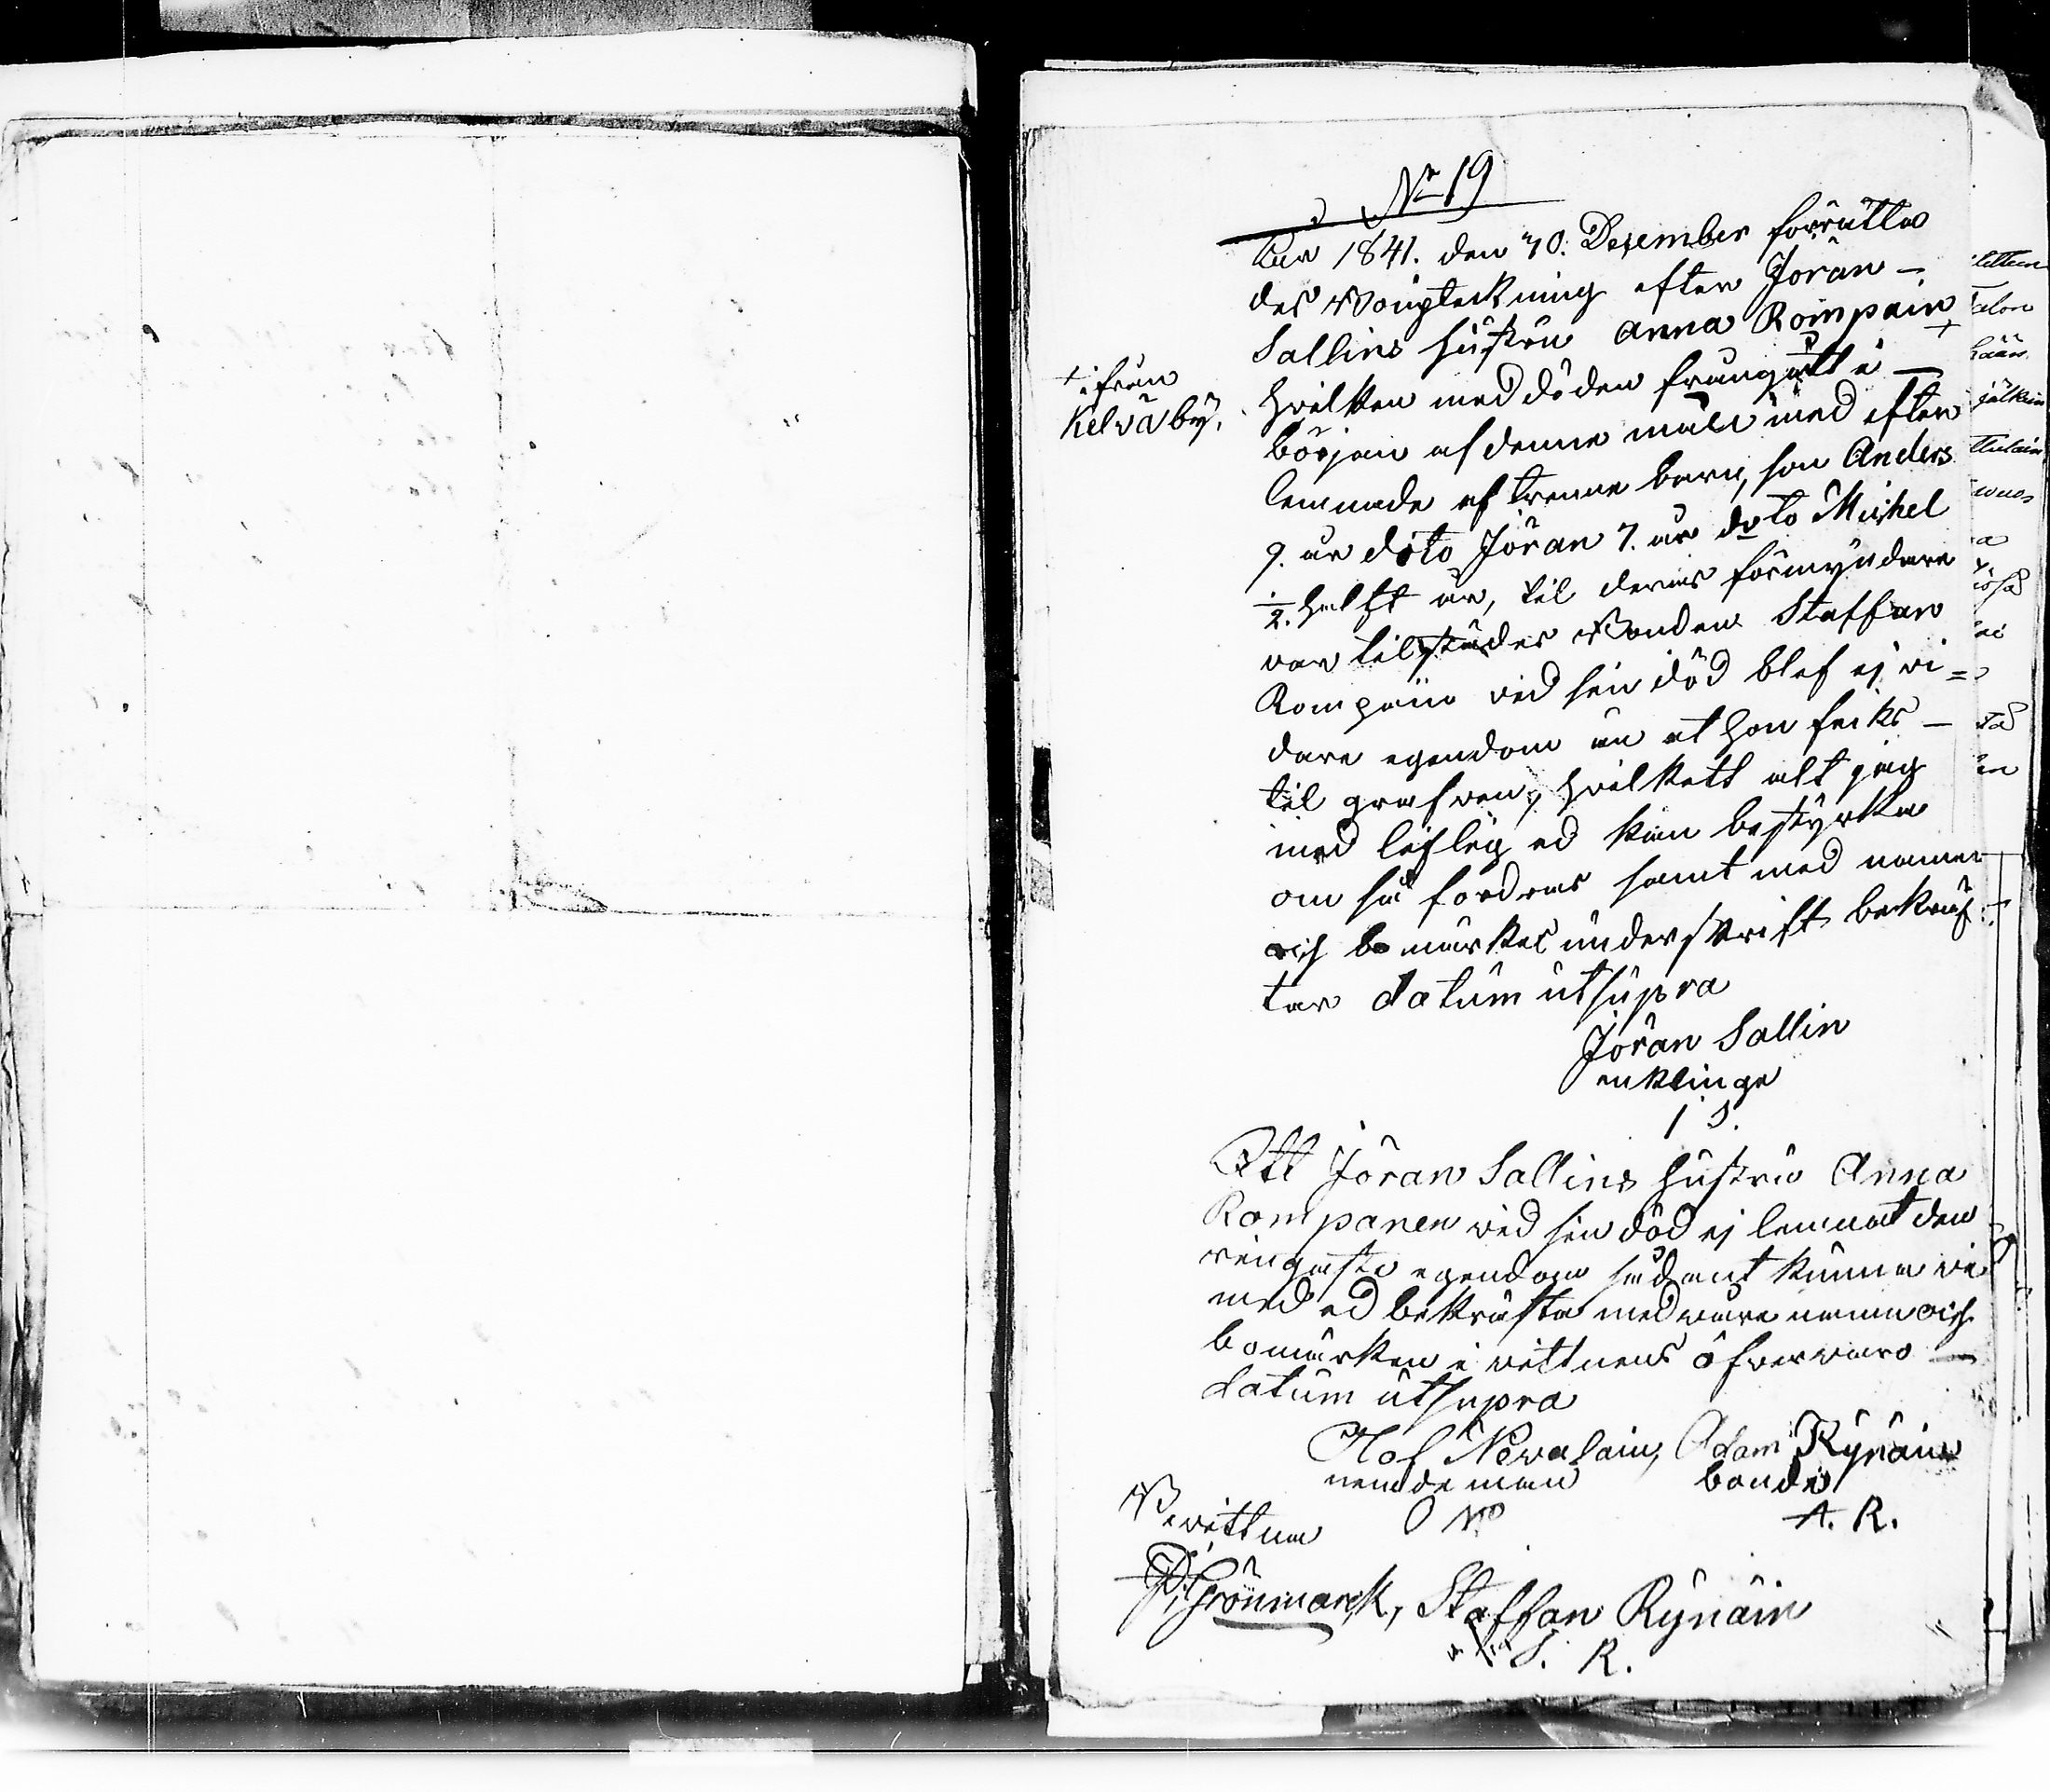 No 19
Åar 1841. den 30. Desember förrätta
des Bougteckning efter Jöran —
Sallins hustru Anna Rompain +
+ ifrån
Kelvä by.
hvilken med döden frångått i —
början af denne månad med efter
lemnade af trenne barn, son Anders
9. år dito Jöran 7. år dito Michel
1/2. helft år, til deras förmyndare
var tilstädes Bonden Staffan
Rompain vid sin död blef ej vi=
dare egendom än at hon fécks —
til grafven, hvilkett alt jag
med lifleig ed kan bestyrka
om så fordras samt med namn
och bomärkes underskrift bekräf
tar datum utsupra
Jöran Sallin
enklinge
I S.
Att Jöran Sallins hustru Anna
Rompanen vid sin död ej lemnat den
ringaste egendom sådant kunna vi
med ed bekräfta med våre namn och
bomärken i vittnens öfvervaro —
datum utsupra
Olof Nevalain, Adam Rÿnäin
nemdeman bonde
O N A. R.
Bevittna
P. Grönmarck, Staffan Rÿnäin
S. R.